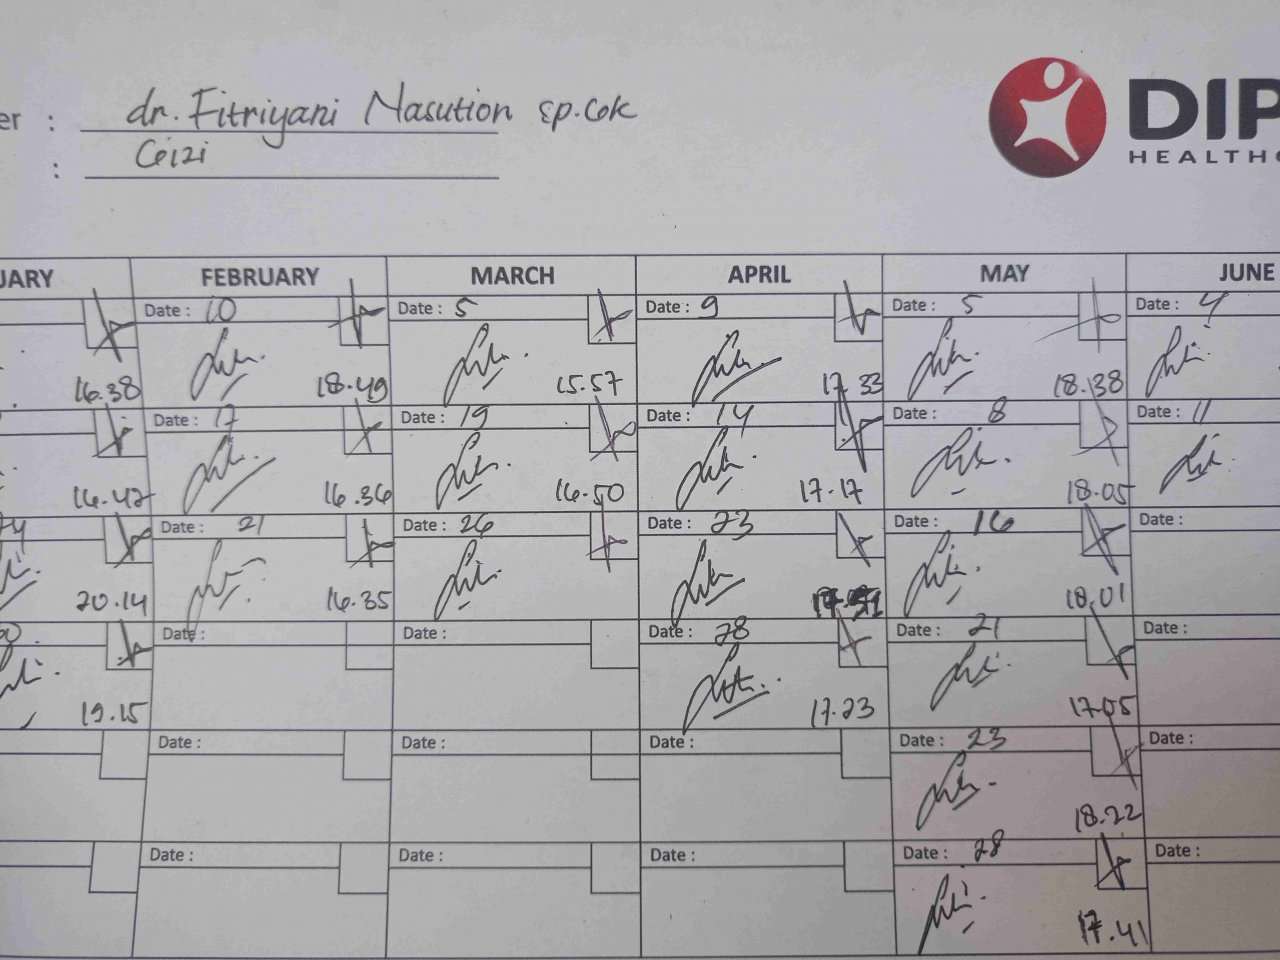 er : dr. Fitriyani Nasution Sp.GK
: Gizi
DIP
HEALTHC
UARY FEBRUARY MARCH APRIL MAY JUNE
Date : 10 Date : 5 Date : 9 Date : 5 Date : 4
16.38 18.49 15.57 17.33 18.138
Date : 17 Date : 19 Date : 14 Date : 8 Date : 11
16.42 16.36 16.50 17.17 18.05
24 Date : 21 Date : 26 Date : 23 Date : 16 Date :
20.14 16.35 18.01
Date : Date : Date : 28 Date : 21 Date :
19.15 17.23 17.05
Date : Date : Date : Date : 23 Date :
18.22
Date : Date : Date : Date : 28 Date :
17.41